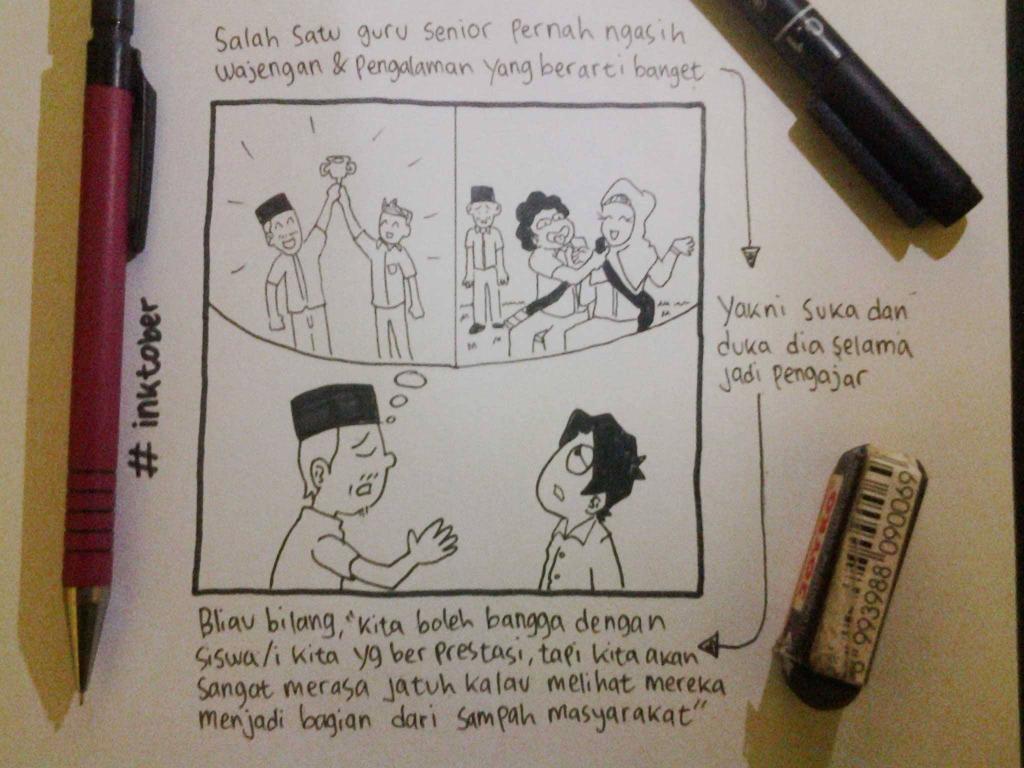 Salah satu guru senior pernah ngasih
wajengan & pengalaman yang berarti banget
Yakni suka dan
duka dia selama
jadi pengajar
Bliau bilang, "kita boleh bangga dengan
siswa/i kita yg ber prestasi, tapi kita akan
sangat merasa jatuh kalau melihat mereka
menjadi bagian dari sampah masyarakat"
#inktober
0.1
9 993988 090069